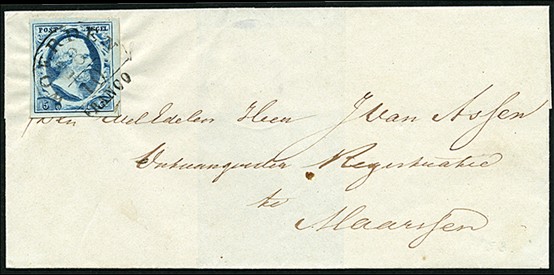 POST ZEGEL
FRANCO
Den WelEdelen Heer J van Assen
Ontvanger der Registratie
te
Maarssen